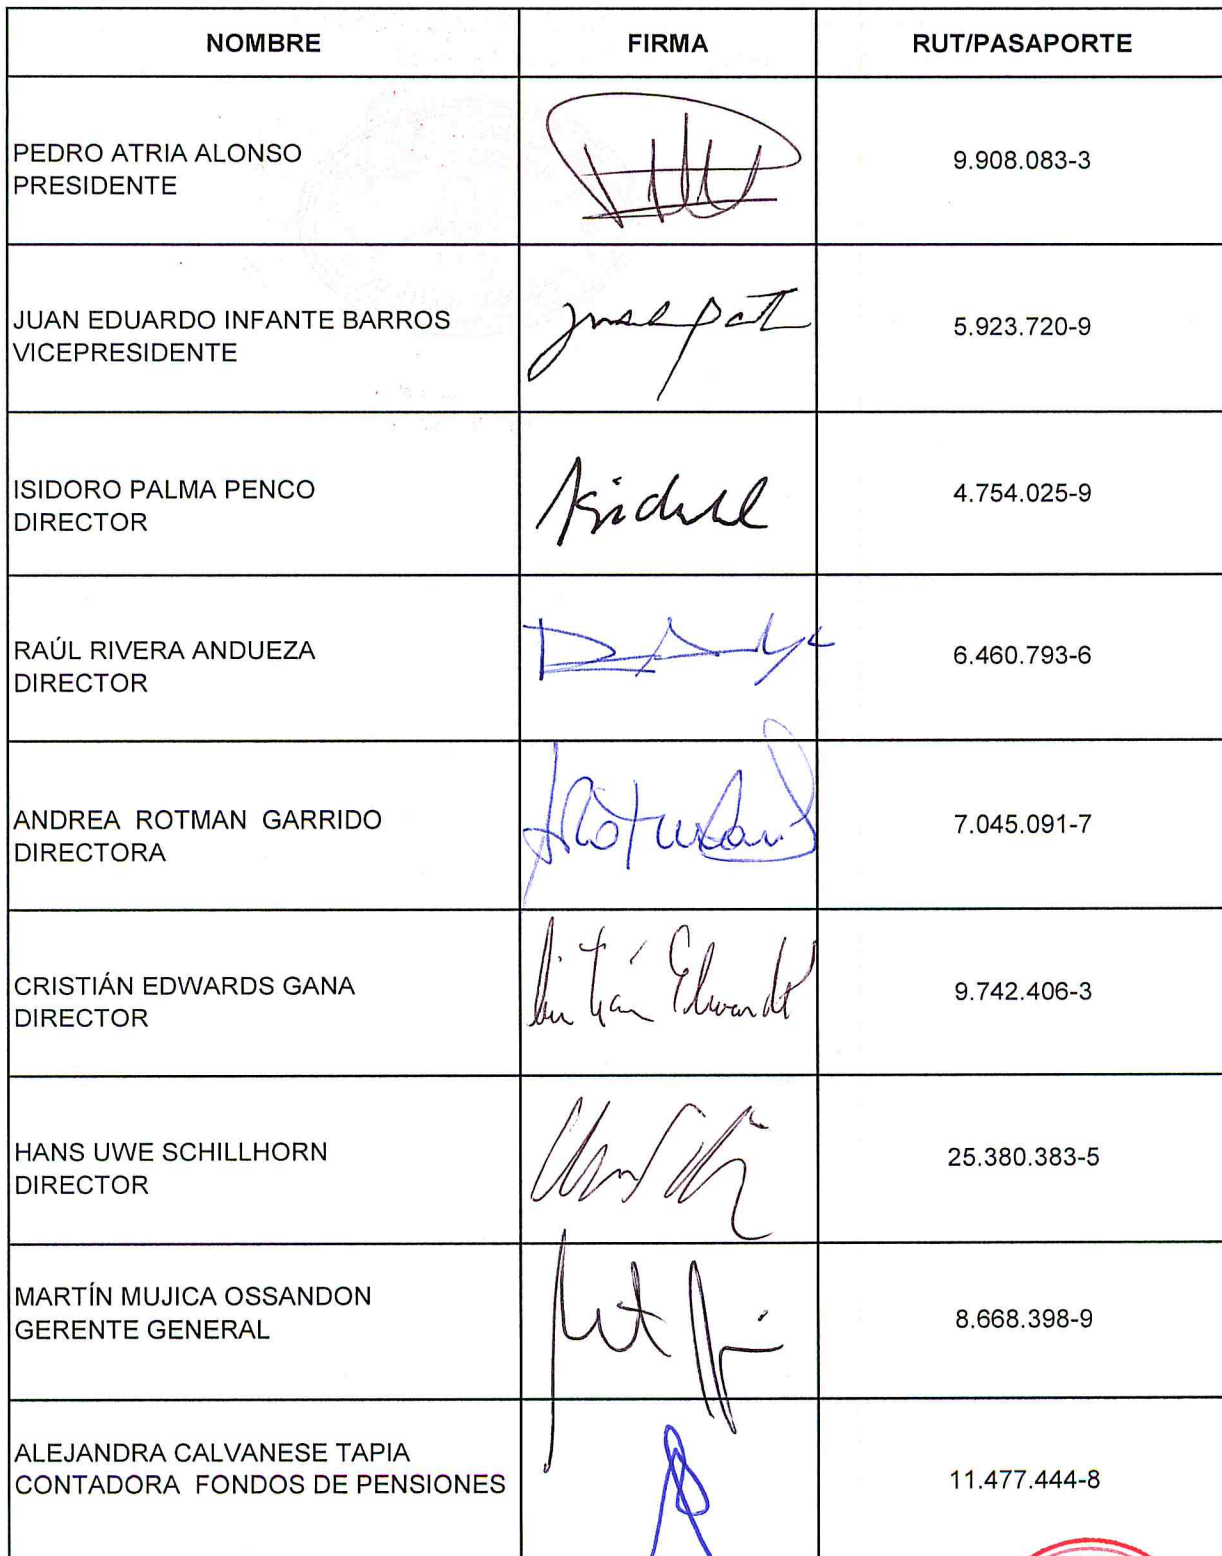 NOMBRE FIRMA RUT/PASAPORTE
PEDRO ATRIA ALONSO
PRESIDENTE
9.908.083-3
JUAN EDUARDO INFANTE BARROS
VICEPRESIDENTE
5.923.720-9
ISIDORO PALMA PENCO
DIRECTOR
4.754.025-9
RAÚL RIVERA ANDUEZA
DIRECTOR
6.460.793-6
ANDREA ROTMAN GARRIDO
DIRECTORA
7.045.091-7
CRISTIÁN EDWARDS GANA
DIRECTOR
Cristián Edwards
9.742.406-3
HANS UWE SCHILLHORN
DIRECTOR
25.380.383-5
MARTÍN MUJICA OSSANDON
GERENTE GENERAL
8.668.398-9
ALEJANDRA CALVANESE TAPIA
CONTADORA FONDOS DE PENSIONES
11.477.444-8